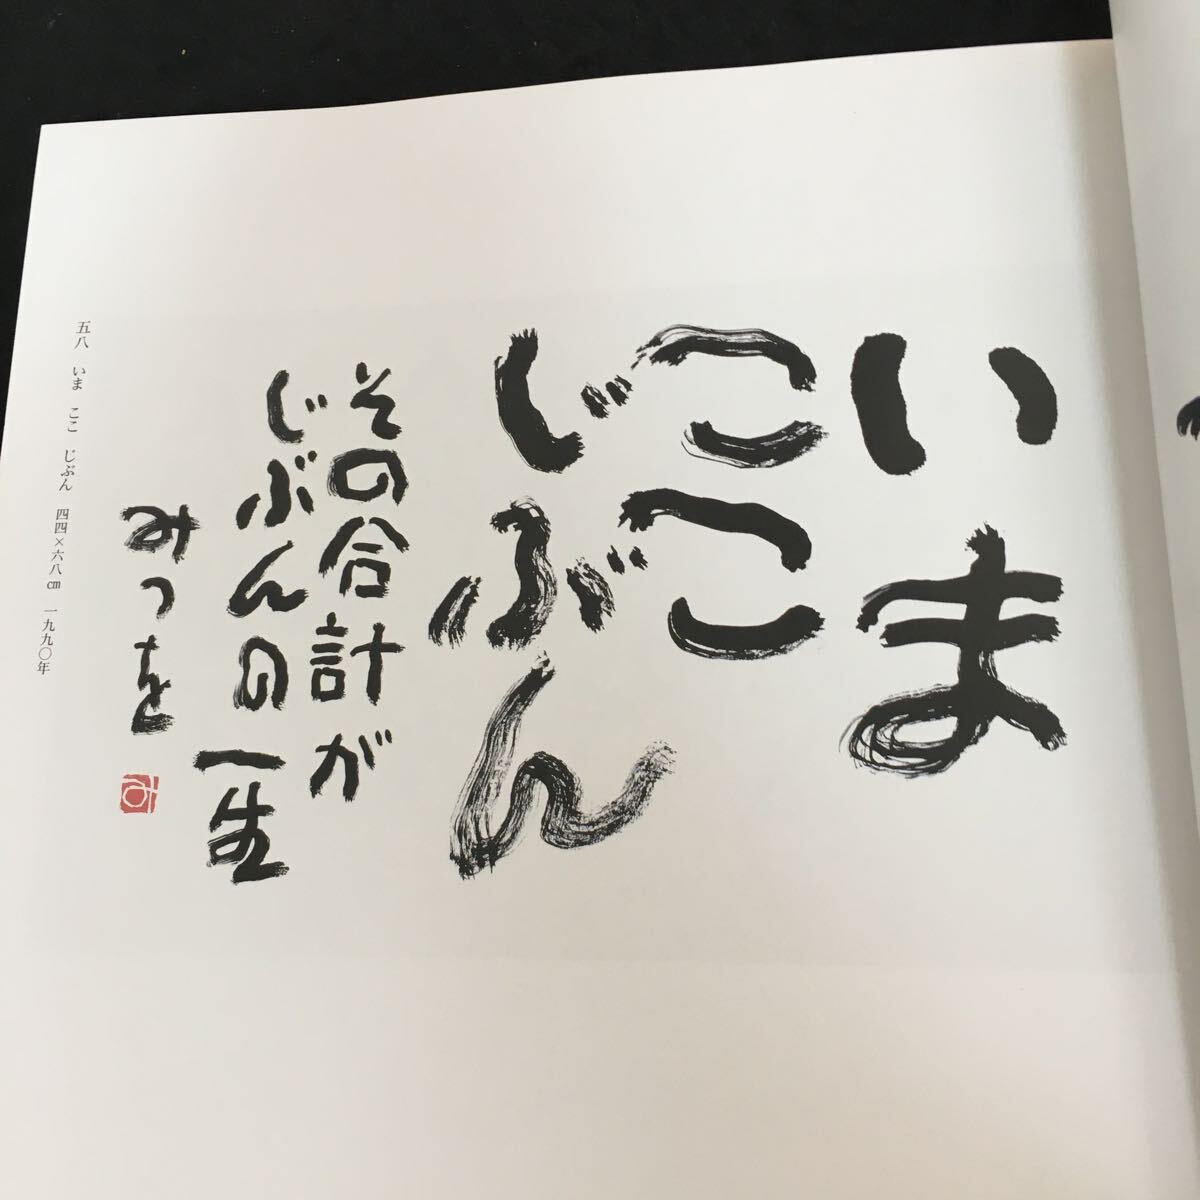 いま
ここ
じぶん
その合計が
じぶんの一生
みつを
み
五八 いま ここ じぶん 四四×六八㎝ 一九九〇年